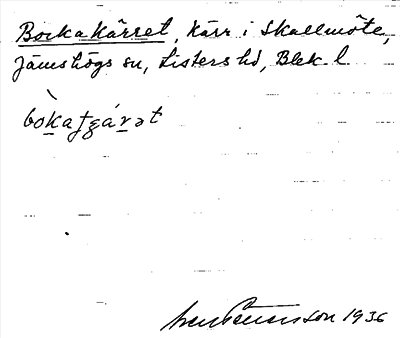 Bockakärret, Kärr i Skallmöte,
Jämshögs sn, Listers hd, Blek. l.
bòkaʈʂárət
1936